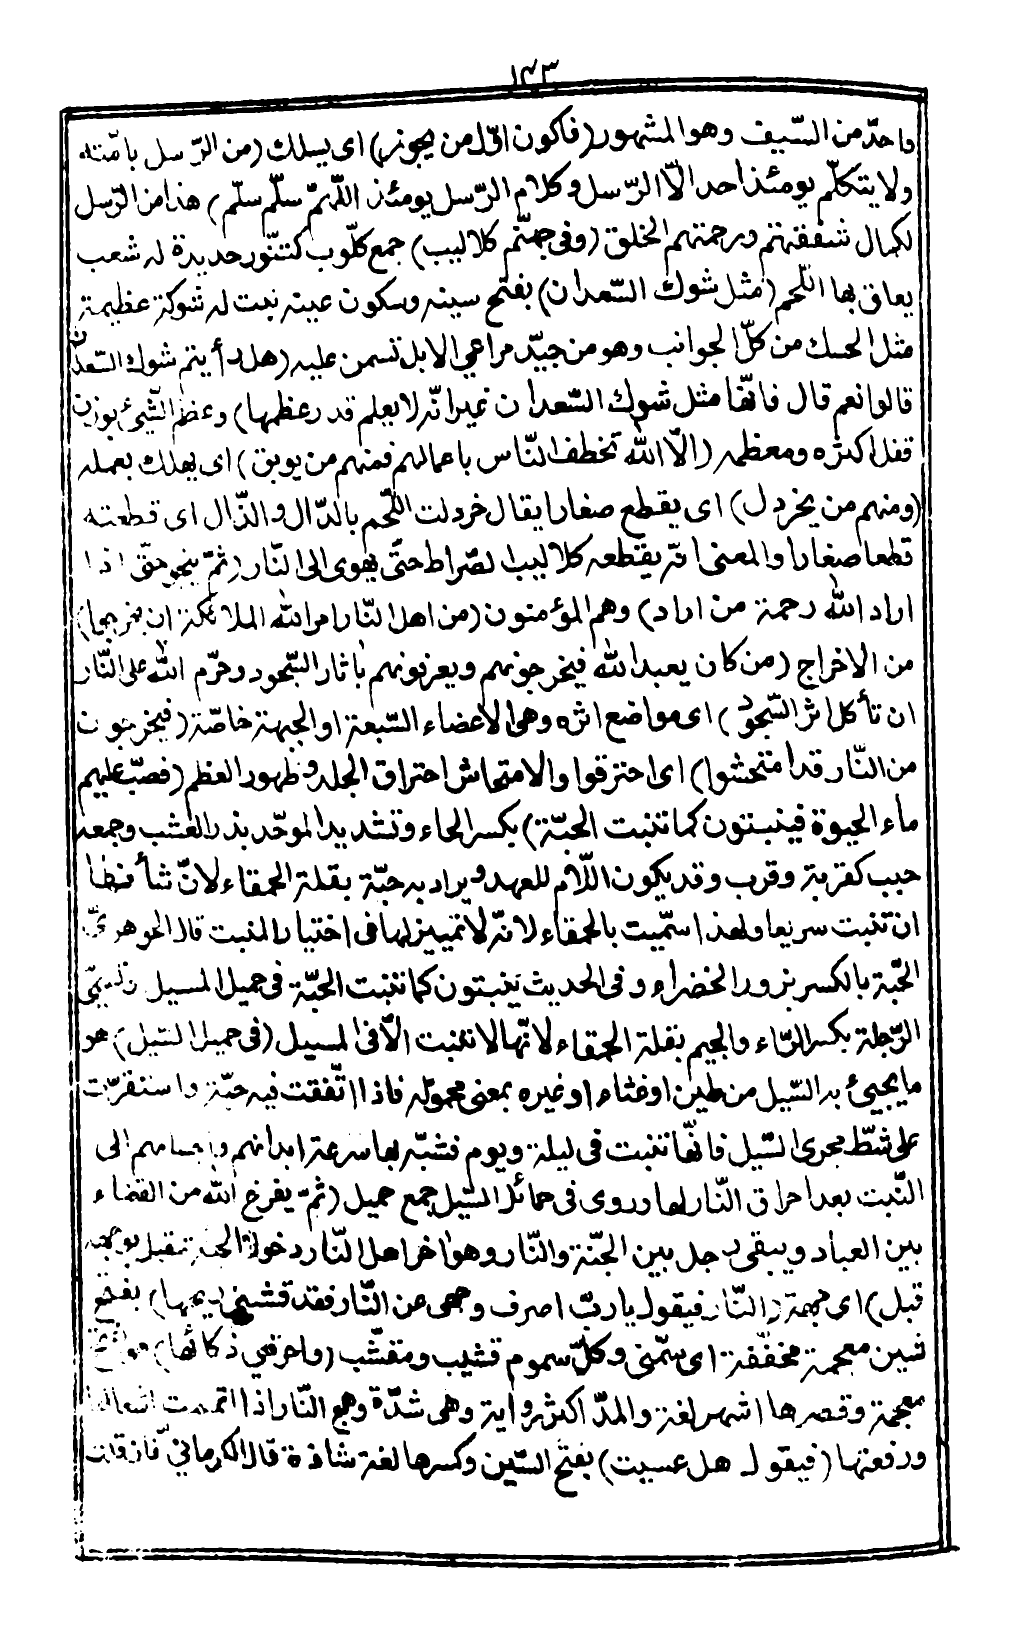 ١٤٣
واحدّ من السّيف وهو المشهور (فاكون اوّل من يجوز) اى يسلك (من الرّسل بامّته
ولا يتكلّم يومئذ احد الّا الرّسل وكلام الرّسل يومئذ اللّهمّ سلّم سلّم) هذا من الرّسل
لكمال شفقتهم ورحمتهم الخلق (وفى جهنّم كلاليب) جمع كلّوب كتنّور حديدة له شعب
يعاق بها اللّحم (مثل شوك السّعدان) بفتح سينه وسكون عينه نبت له شوكة عظيمة
مثل الحسك من كلّ الجوانب وهو من جيّد مراعى الابل تسمن عليه (هل رأيتم شوك السّعدان
قالوا نعم قال فانّها مثل شوك السّعدان غير انّه لا يعلم قدر عظمها) وعظم الشّيئ بوزن
قفل اكثره ومعظمه (الّا الله تخطف النّاس باعمالهم فمنهم من يوبق) اى يهلك بعمله
(ومنهم من يخردل) اى يقطع صغارا يقال خردلت اللّحم بالدّال والذّال اى قطعته
قطعا صغارا والمعنى انّه يقطعه كلاليب الصّراط حتّى يهوى الى النّار (ثمّ ينجو حتّى اذا
اراد الله رحمة من اراد) وهم المؤمنون (من اهل النّار امر الله الملائكة ان يخرجوا)
من الاخراج (من كان يعبد الله فيخرجونهم ويعرفونهم بآثار السّجود وحرّم الله على النّار
ان تأكل اثر السّجود) اى مواضع اثره وهى الاعضاء السّبعة او الجبهة خاصّة (فيخرجون
من النّار قد امتحشوا) اى احترقوا والامتحاش احتراق الجلد وظهور العظم (فصبّ عليهم
ماء الحيوة فينبتون كما تنبت الحبّة) بكسر الحاء وتشديد الموحّد بذر العشب وجمعه
حبب كقربة وقرب وقد يكون اللّام للعهد ويراد به حبّة بقلة الحمقاء لانّ شأنها
ان تنبت سريعا ولهذا سمّيت بالحمقاء لانّه لا تمييز لها فى اختيار المنبت قال الجوهرىّ
الحبّة بالكسر بزور الخضراء وفى الحديث ينبتون كما تنبت الحبّة فى حميل المسيل وتسمّى
الرّجلة بكسر الرّاء والجيم بقلة الحمقاء لانّها لا تنبت الّا فى المسيل (فى حميل السّيل) هو
ما يجيئ به السّيل من طين او غثاء او غيره بمعنى محموله فاذا اتّفقت فيه حبّة واستقرّت
على شطّ مجرى السّيل فانّها تنبت فى ليلة ويوم فشبّه بها سرعة ابدانهم واجسامهم الى
النّبت بعد احراق النّار لها وروى فى حمائل السّيل جمع حميل (ثمّ يفرغ الله من القضاء
بين العباد ويبقى رجل بين الجنّة والنّار وهو آخر اهل النّار دخولا الجنّة مقبل بوجهه
قبل) اى جهة (النّار فيقول يا ربّ اصرف وجهى عن النّار فقد قشبنى ريحها) بفتح
شين معجمة مخفّفة اى سمّنى وكلّ سموم قشيب ومقشّب (واحرقنى ذكائها) هو بفتح
معجمة وقصرها اشهر لغة والمدّ اكثر رواية وهى شدّة وهج النّار اذا اتممت اشعالها
ورفعتها (فيقول هل عسيت) بفتح السّين وكسرها لغة شاذة قال الكرمانىّ فان قلت